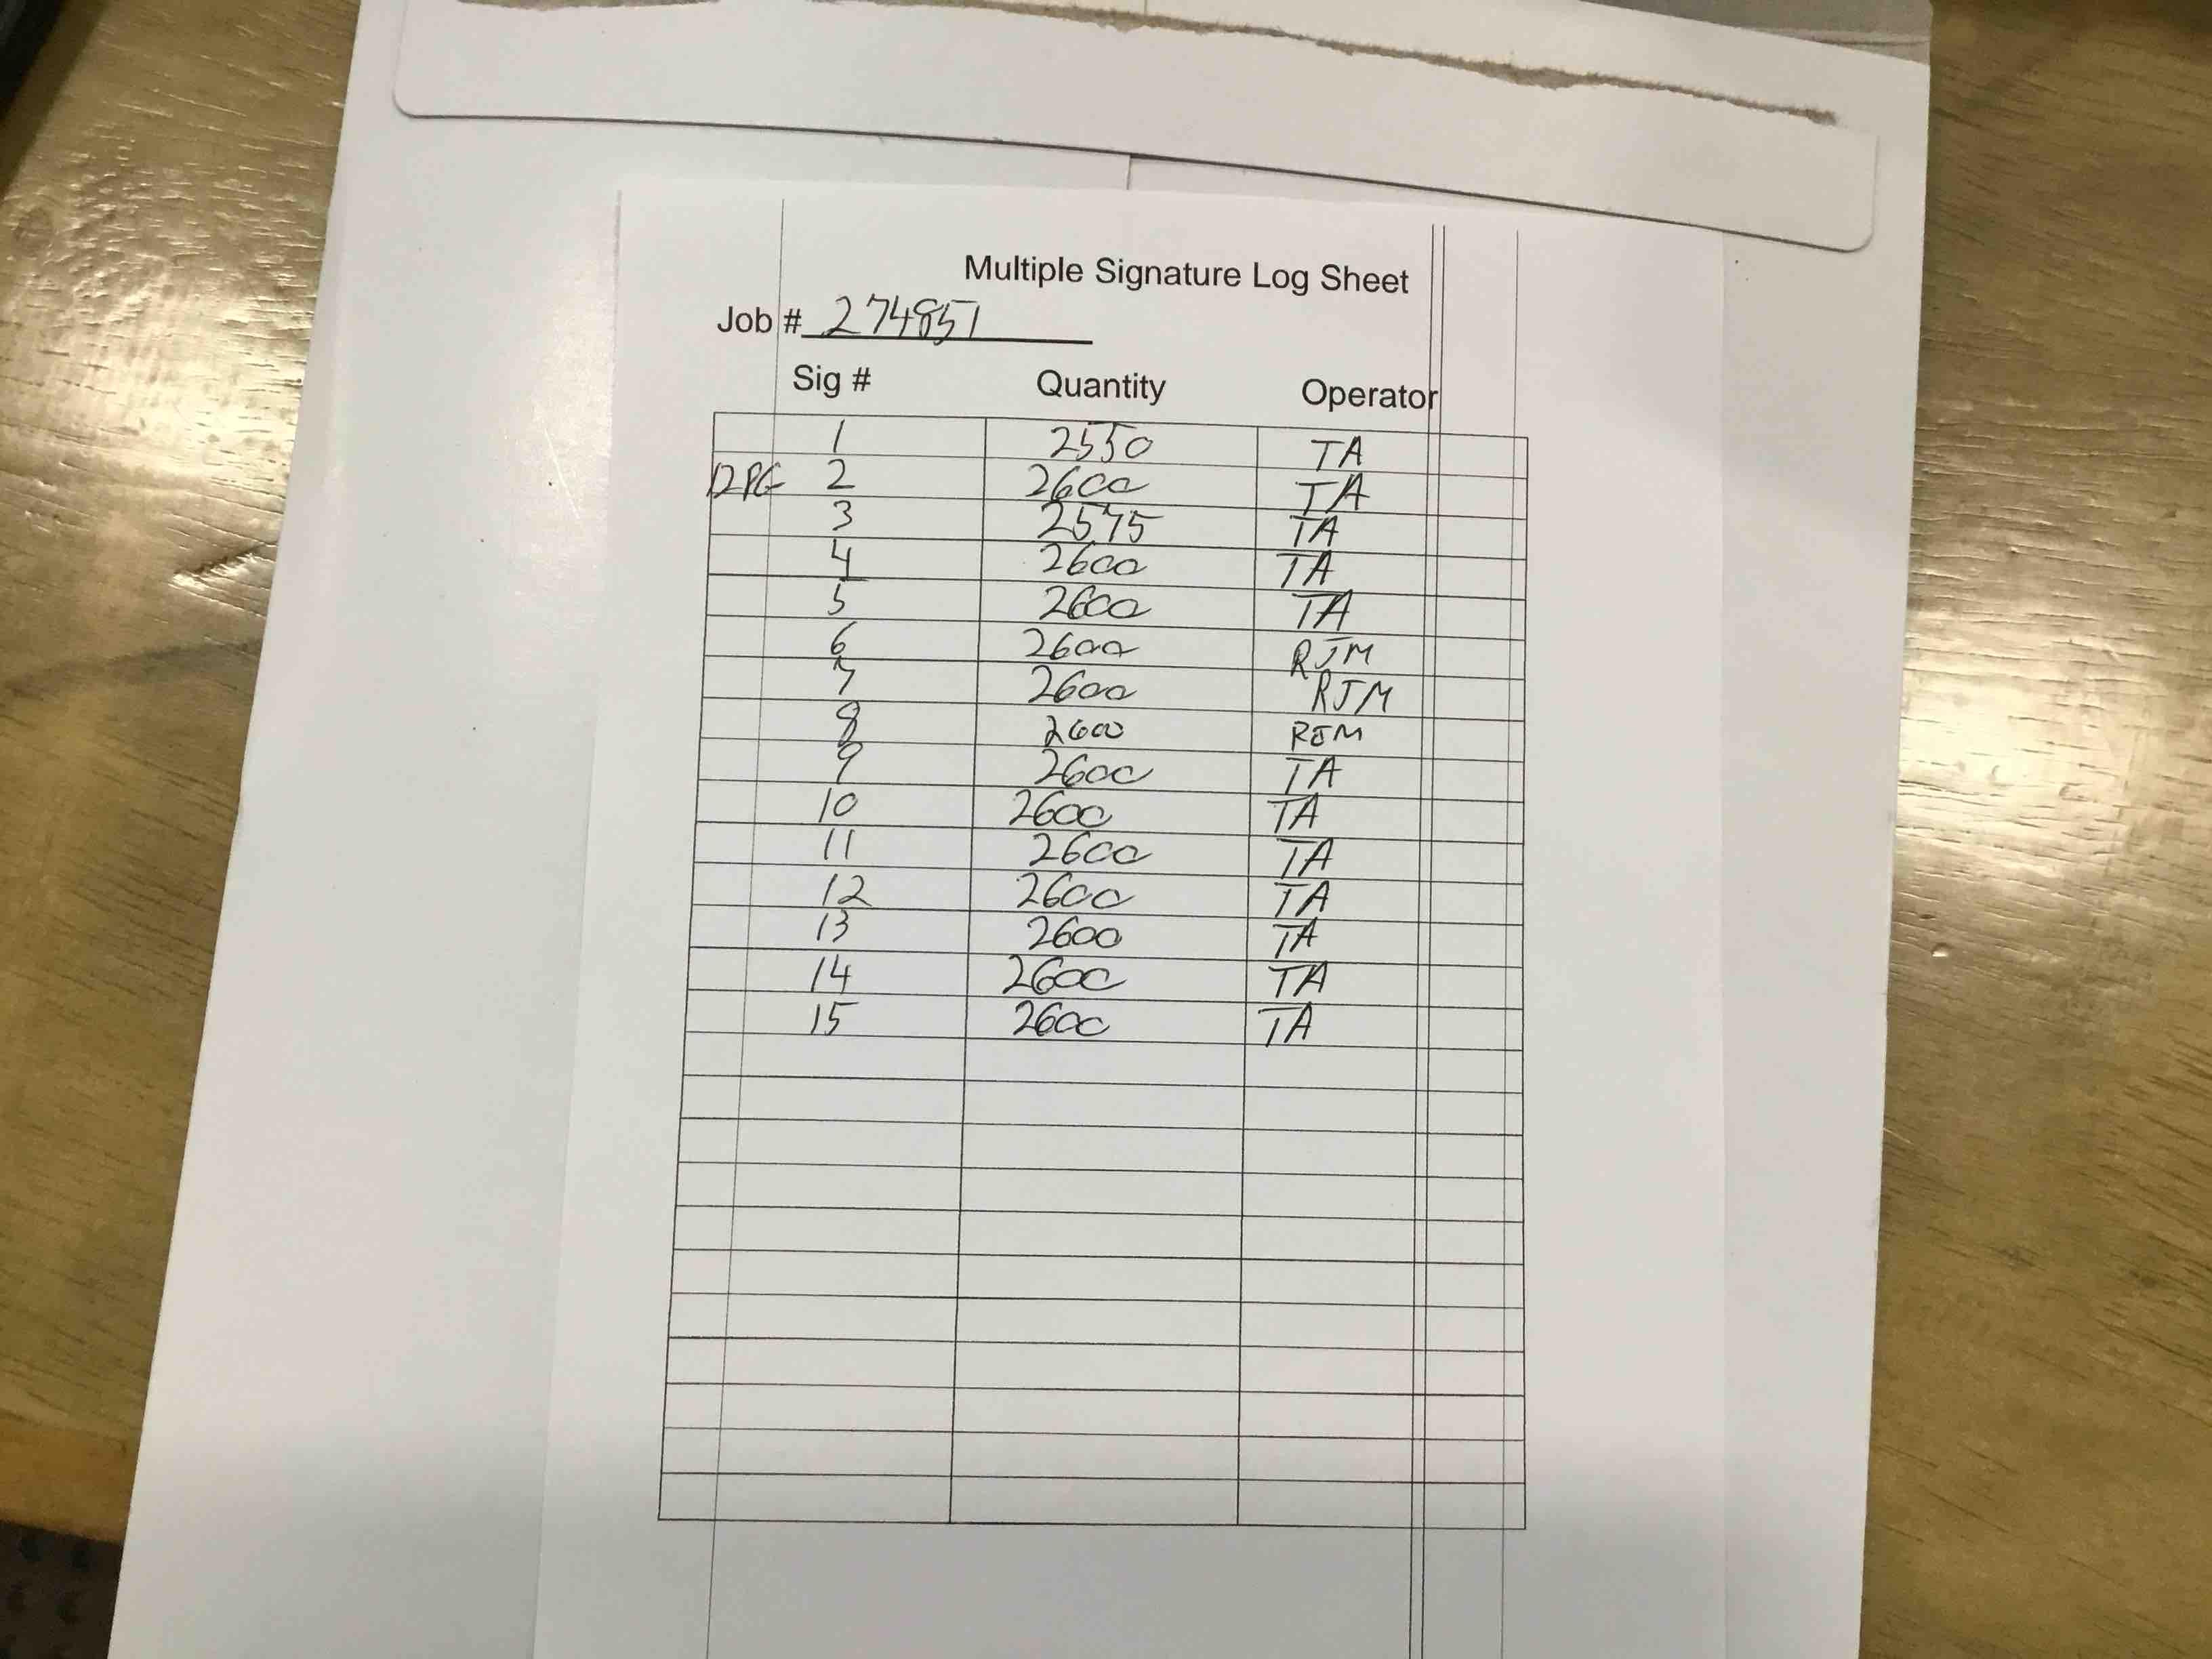 Multiple Signature Log Sheet
Job # 274851
Sig # Quantity Operator
1 2550 TA
12PG 2 2600 TA
3 2575 TA
4 2600 TA
5 2600 TA
6 2600 RJM
7 2600 RJM
8 2600 RJM
9 2600 TA
10 2600 TA
11 2600 TA
12 2600 TA
13 2600 TA
14 2600 TA
15 2600 TA